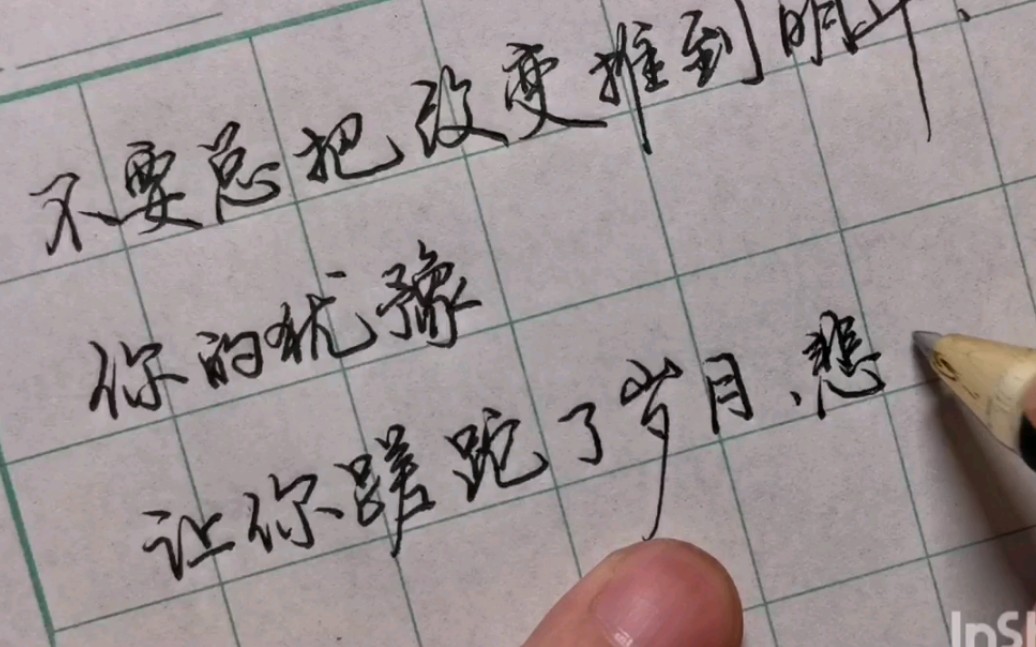 不要总把改变推到明年、
你的犹豫
让你蹉跎了岁月、悲
InSh